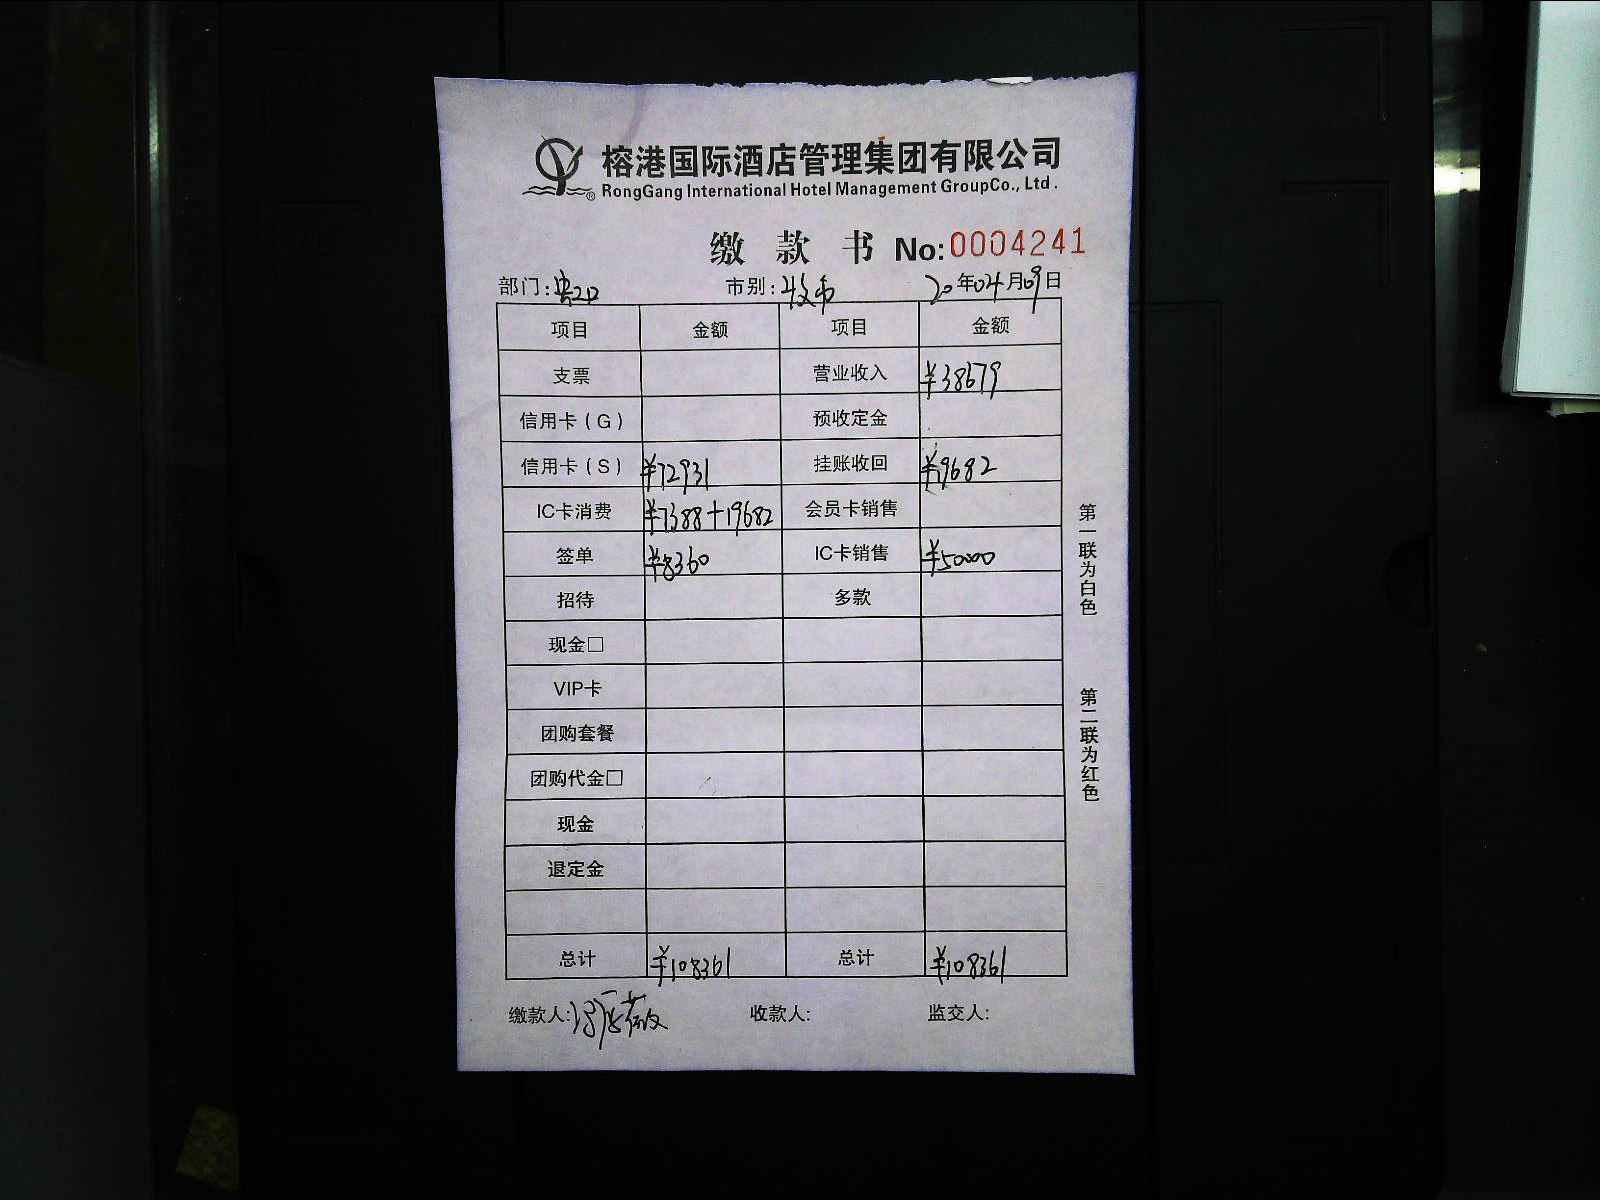 榕港国际酒店管理集团有限公司
RongGang International Hotel Management GroupCo., Ltd.
缴款书 No:0004241
部门: 市别:收市 20年04月09日
项目 金额 项目 金额
支票 营业收入 ¥38679
信用卡(G) 预收定金
信用卡(S) ¥72931 挂账收回 ¥19682
IC卡消费 ¥7388+19682 会员卡销售
签单 ¥8360 IC卡销售 ¥50000
招待 多款
现金□
VIP卡
团购套餐
团购代金□
现金
退定金
总计 ¥108361 总计 ¥108361
缴款人: 收款人: 监交人:
第一联为白色
第二联为红色